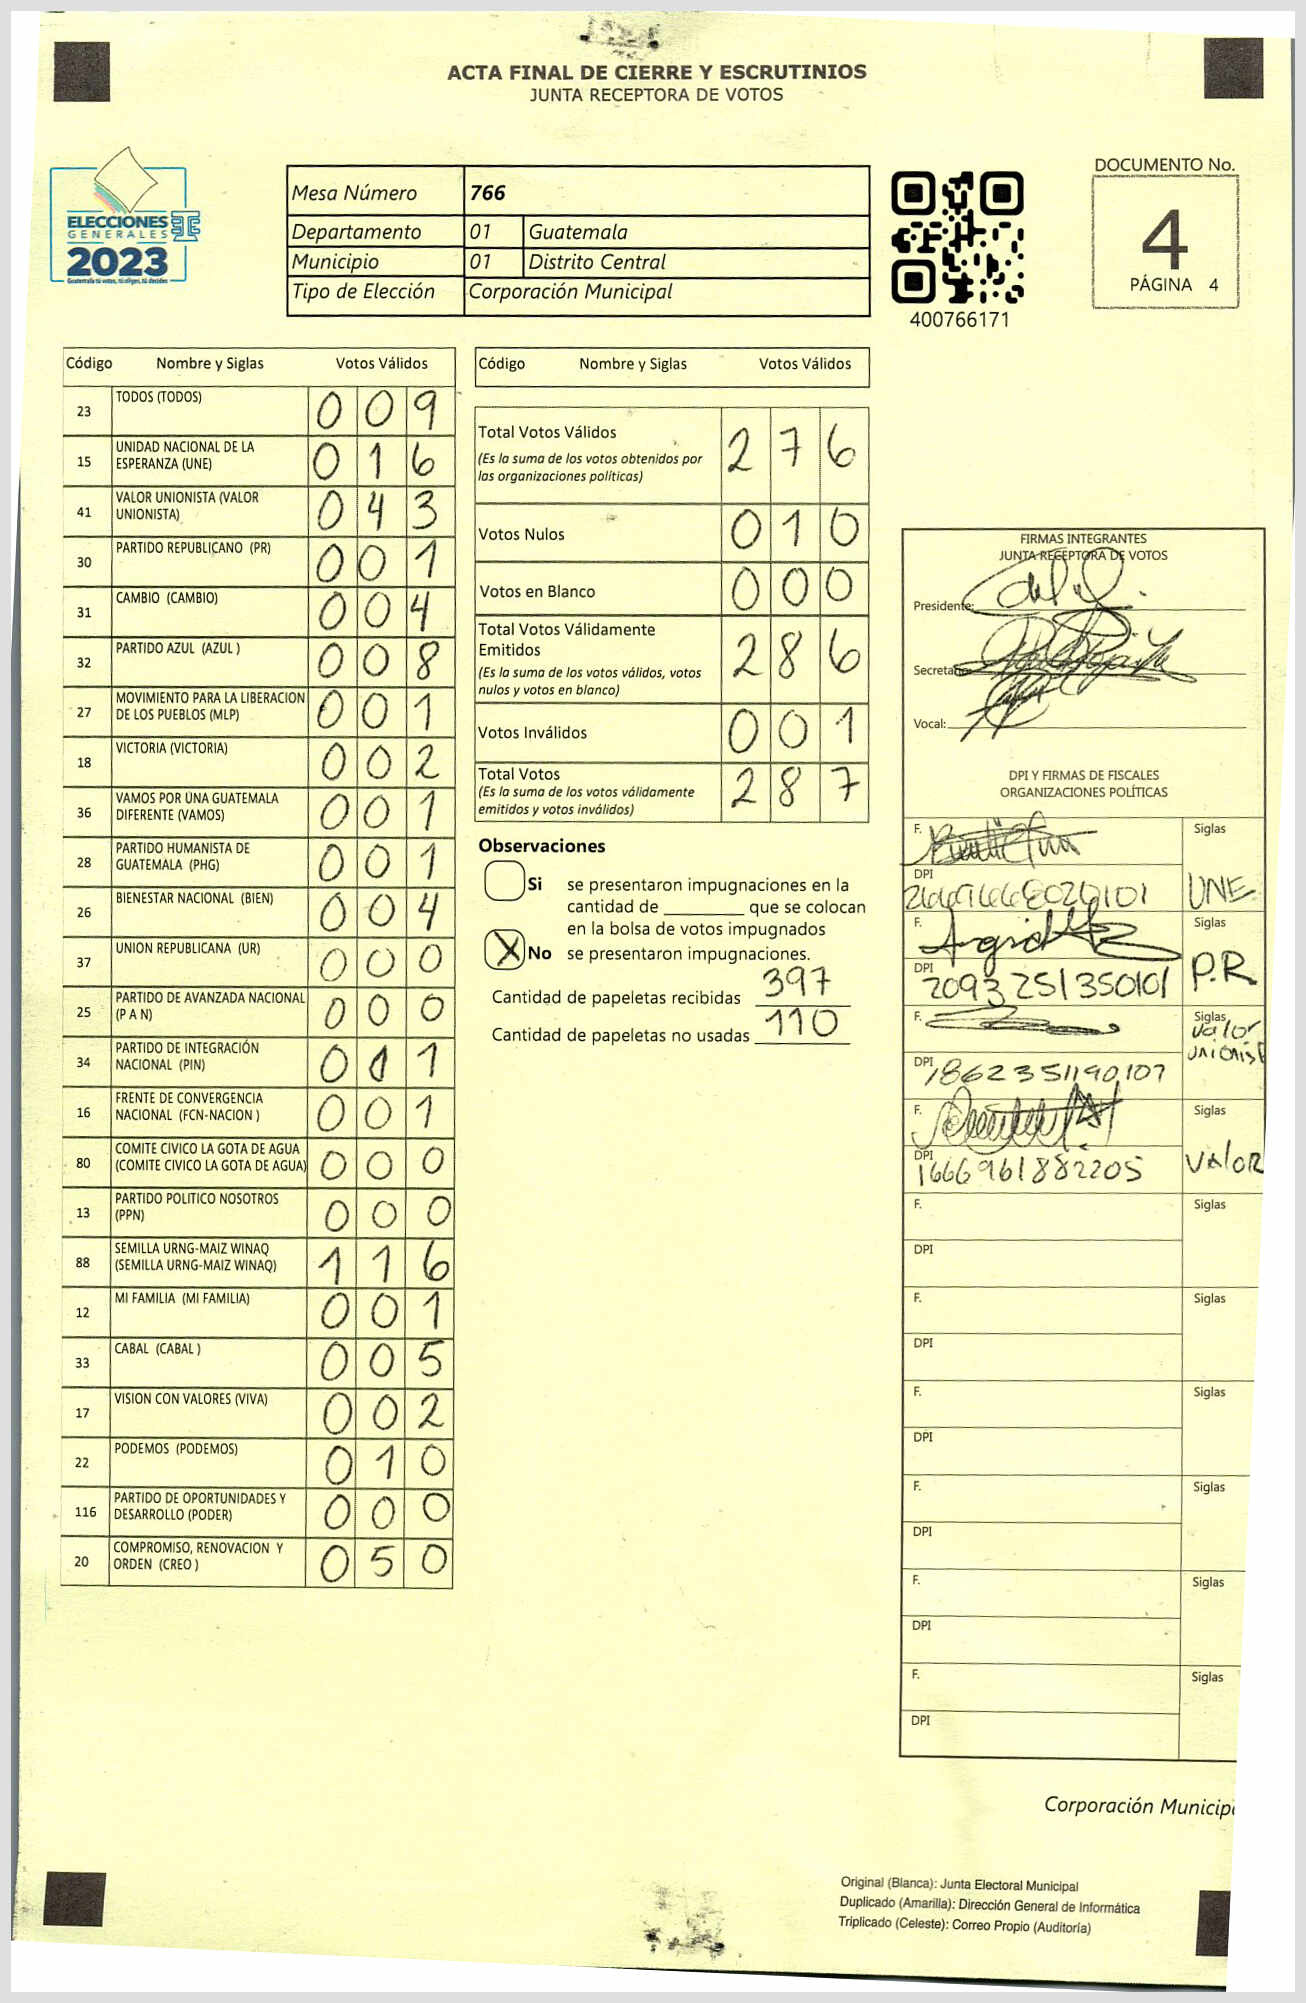 ACTA FINAL DE CIERRE Y ESCRUTINIOS
JUNTA RECEPTORA DE VOTOS
ELECCIONES
GENERALES
2023
Guatemala tú votas, tú eliges, tú decides
Mesa Número 766
Departamento 01 Guatemala
Municipio 01 Distrito Central
Tipo de Elección Corporación Municipal
400766171
DOCUMENTO No.
4
PÁGINA 4
Código Nombre y Siglas Votos Válidos
23 TODOS (TODOS) 0 0 9
15 UNIDAD NACIONAL DE LA ESPERANZA (UNE) 0 1 6
41 VALOR UNIONISTA (VALOR UNIONISTA) 0 4 3
30 PARTIDO REPUBLICANO (PR) 0 0 1
31 CAMBIO (CAMBIO) 0 0 4
32 PARTIDO AZUL (AZUL ) 0 0 8
27 MOVIMIENTO PARA LA LIBERACION DE LOS PUEBLOS (MLP) 0 0 1
18 VICTORIA (VICTORIA) 0 0 2
36 VAMOS POR UNA GUATEMALA DIFERENTE (VAMOS) 0 0 1
28 PARTIDO HUMANISTA DE GUATEMALA (PHG) 0 0 1
26 BIENESTAR NACIONAL (BIEN) 0 0 4
37 UNION REPUBLICANA (UR) 0 0 0
25 PARTIDO DE AVANZADA NACIONAL (P A N) 0 0 0
34 PARTIDO DE INTEGRACIÓN NACIONAL (PIN) 0 1 1
16 FRENTE DE CONVERGENCIA NACIONAL (FCN-NACION ) 0 0 1
80 COMITE CIVICO LA GOTA DE AGUA (COMITE CIVICO LA GOTA DE AGUA) 0 0 0
13 PARTIDO POLITICO NOSOTROS (PPN) 0 0 0
88 SEMILLA URNG-MAIZ WINAQ (SEMILLA URNG-MAIZ WINAQ) 1 1 6
12 MI FAMILIA (MI FAMILIA) 0 0 1
33 CABAL (CABAL ) 0 0 5
17 VISION CON VALORES (VIVA) 0 0 2
22 PODEMOS (PODEMOS) 0 1 0
116 PARTIDO DE OPORTUNIDADES Y DESARROLLO (PODER) 0 0 0
20 COMPROMISO, RENOVACION Y ORDEN (CREO ) 0 5 0
Código Nombre y Siglas Votos Válidos
Total Votos Válidos 2 7 6
(Es la suma de los votos obtenidos por
las organizaciones políticas)
Votos Nulos 0 1 0
Votos en Blanco 0 0 0
Total Votos Válidamente
Emitidos 2 8 6
(Es la suma de los votos válidos, votos
nulos y votos en blanco)
Votos Inválidos 0 0 1
Total Votos 2 8 7
(Es la suma de los votos válidamente
emitidos y votos inválidos)
Observaciones
Si se presentaron impugnaciones en la
cantidad de ________ que se colocan
en la bolsa de votos impugnados
X No se presentaron impugnaciones.
Cantidad de papeletas recibidas 397
Cantidad de papeletas no usadas 110
FIRMAS INTEGRANTES
JUNTA RECEPTORA DE VOTOS
Presidente:
Secretario:
Vocal:
DPI Y FIRMAS DE FISCALES
ORGANIZACIONES POLÍTICAS
F. Siglas
DPI UNE
F. Siglas
DPI 2093 251350101 P.R
F. Siglas
valor
unionist
DPI 1862351190107
F. Siglas
DPI 1666961882205 VALOR
F. Siglas
DPI
F. Siglas
DPI
F. Siglas
DPI
F. Siglas
DPI
F. Siglas
DPI
F. Siglas
DPI
Corporación Municip
Original (Blanca): Junta Electoral Municipal
Duplicado (Amarilla): Dirección General de Informática
Triplicado (Celeste): Correo Propio (Auditoría)